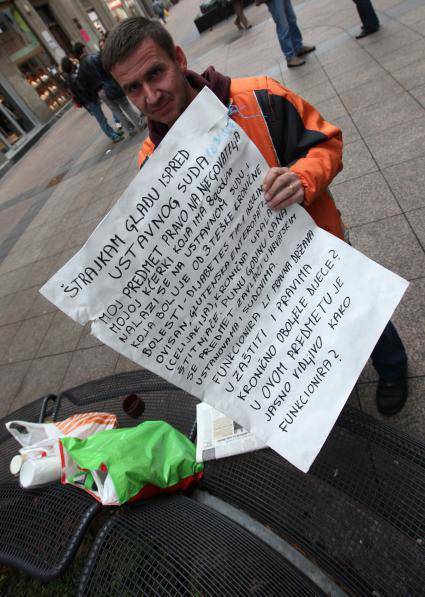 ŠTRAJKAM GLAĐU ISPRED
USTAVNOG SUDA
MOJ PREDMET, PRAVO NA NJEGOVATELJA
MOJOJ KĆERKI KOJA IMA
NALAZI SE NA USTAVNOM SUDU I
KOJA BOLUJE OD 3 TEŠKE KRONIČNE
BOLESTI. DIJABETES NA
OVISAN, GLUTEINSKA ENTEROPATIJA
CELIJAKIJA I KRONIČNA
ŠTITNJAČE. PUNU GODINU DANA
SE PREDMET ZAVLAČI U
USTANOVAMA SUDOVIMA.
FUNKCIONIRA LI PRAVNA DRŽAVA
U ZAŠTITI I PRAVIMA
KRONIČNO OBOLJELE DJECE?
U OVOM PREDMETU JE
JASNO VIDLJIVO KAKO
FUNKCIONIRA?